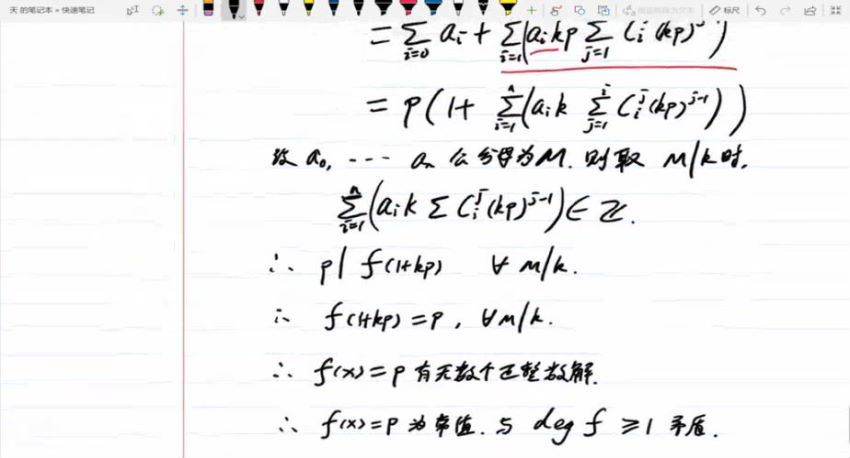 天 的笔记本 » 快速笔记
将墨迹转换为文本 标尺
= ∑_{i=0} a_i + ∑_{i=1}(a_i kp ∑_{j=1} C_i (kp)^j)
= p(1+ ∑_{i=1}^{n}(a_i k ∑_{j=1}^{i} C_i^j (kp)^{j-1}))
设 a_0, ---- a_n 公分母为M. 则取 M/k时,
∑_{i=1}^{n}(a_i k ∑ C_i^j (kp)^{j-1}) ∈ ℤ.
∴ p| f(1+kp) ∀ M/k.
∴ f(1+kp) = p, ∀M/k.
∴ f(x) = p 有无数个正整数解.
∴ f(x) = p 为常值. 与 deg f ≥ 1 矛盾.